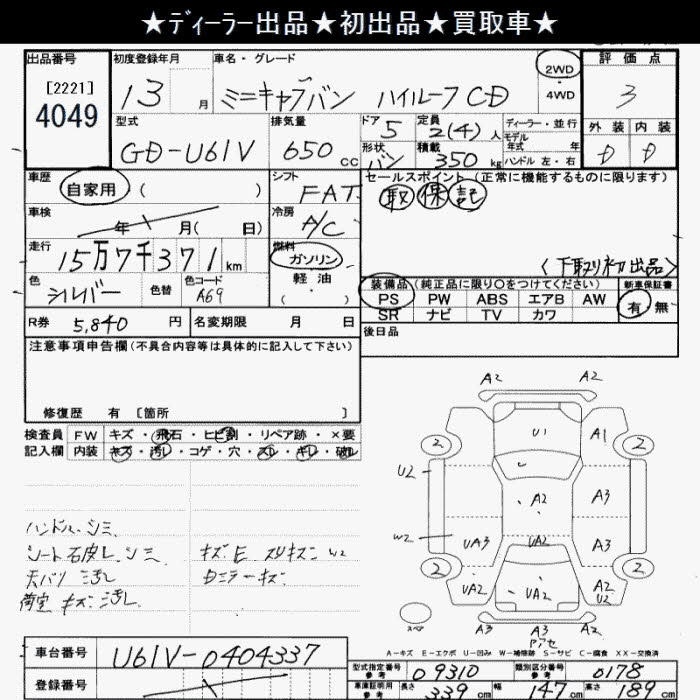 ★ディーラー出品★初出品★買取車★
出品番号 初度登録年月 車名・グレード 2WD 評価点
[2221] 4049 13 月 ミニキャブバン ハイルーフ CD ・4WD 3
型式 排気量 ドア 5 定員 2(4) 人 ディーラー・並行 外装 内装
モデル
年式 年
GD-U61V 650 cc 形状 バン 積載 350 kg ハンドル 左・右 D D
車歴 自家用 ( ) シフト FAT セールスポイント(正常に機能するものに限ります)
取 保 記
車検 年 月( 日) 冷房 A/C
走行 15万7千371km 燃料 ガソリン
軽油
( )
<下取り初出品>
色 シルバー 色替 色コード A69
装備品(純正品に限り○をつけてください) 新車保証書
PS PW ABS エアB AW 有・無
SR ナビ TV カワ
R券 5,840 円 名変期限 月 日
後日品
注意事項申告欄(不具合内容等は具体的に記入して下さい)
修復歴 有 [箇所 ]
検査員 FW キズ・飛石・ヒビ割・リペア跡・×要
記入欄 内装 キズ・汚レ・コゲ・穴・スレ・キレ・破レ
ハンドル シミ
シート 石皮レ シミ キズ E スリキズ W2
天バリ 汚レ
荷室 キズ 汚レ
A2 A2
U1 A1
2 2
U2
A2 A3
W2 UA3 UA2 A3
2 2
UA2 UA2 A2 U2
スペア
A3 A3 A2
A-キズ E-エクボ U-凹み W-補修跡 S-サビ C-腐食 XX-交換済
車台番号 U61V-0404337
型式指定番号 参考 09310 類別区分番号 参考 0178
登録番号
車庫証明用 参考 長さ 339 cm 幅 147 cm 高さ 189 cm